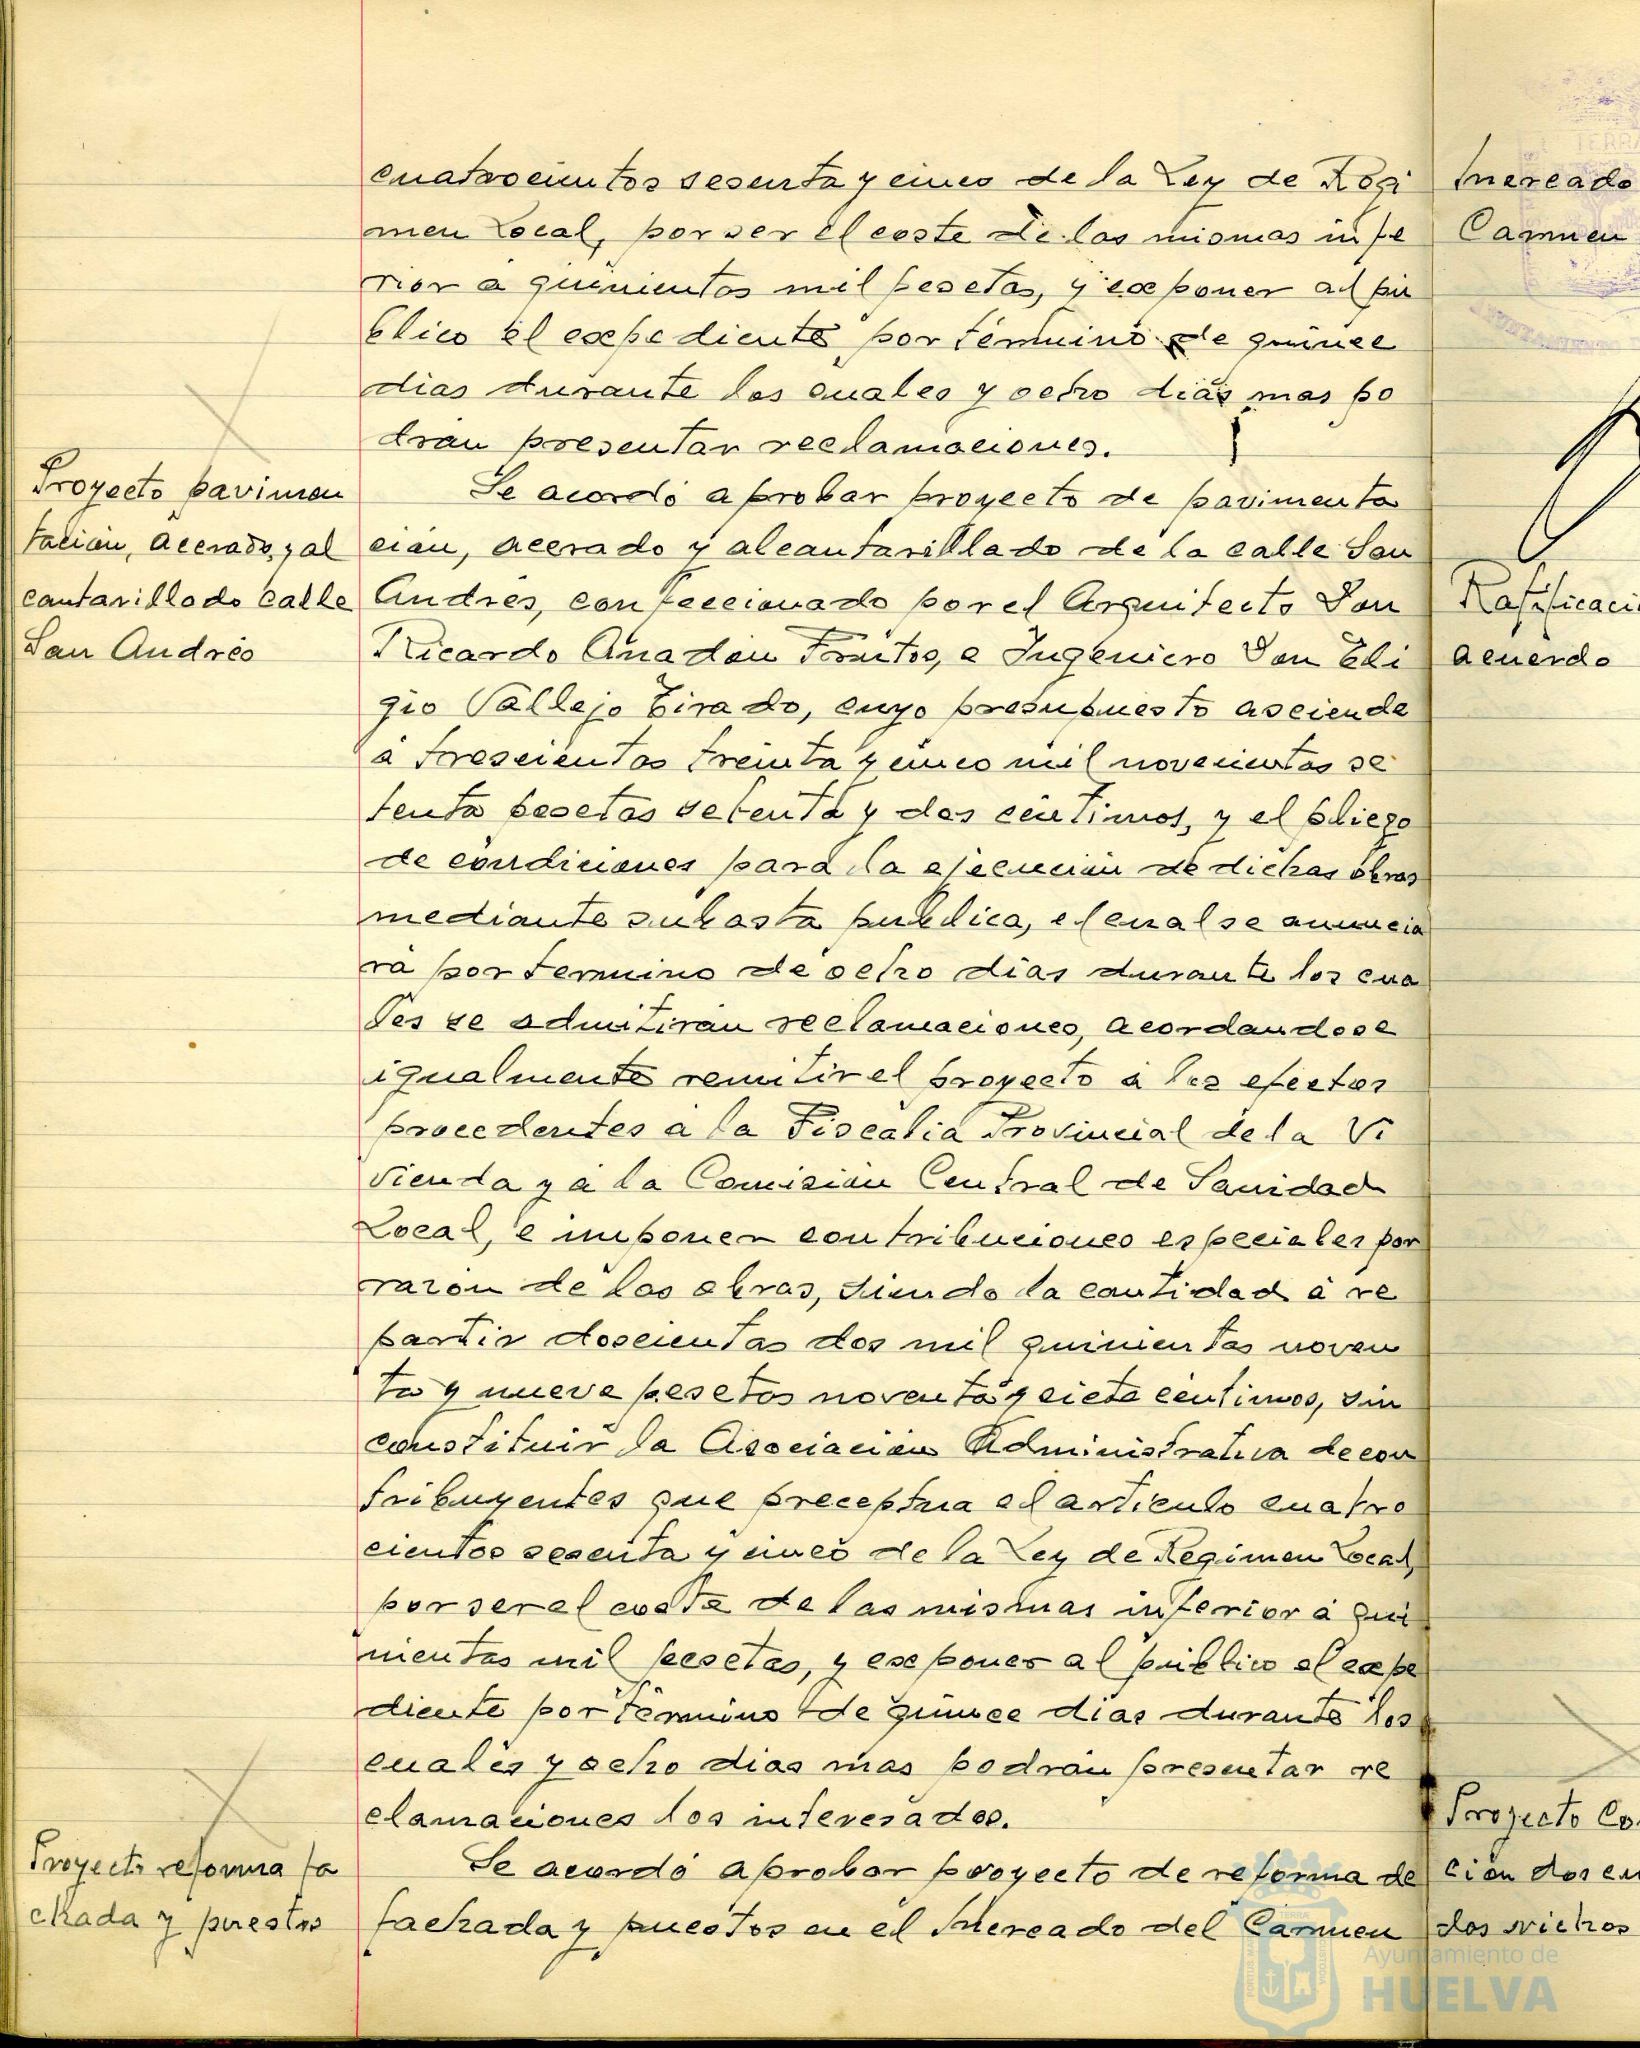 cuatrocientos sesenta y cinco de la Ley de Régi
men Local, por ser el coste de las mismas infe
rior a quinientas mil pesetas, y exponer al pú
blico el expediente por término de quince
dias durante los cuales y ocho días mas po
drán presentar reclamaciones.
Proyecto pavimen
tación, acerado, y al
cantarillado calle
San Andrés
Se acordó aprobar proyecto de pavimenta
ción, acerado y alcantarillado de la calle San
Andrés, confeccionado por el Arquitecto Don
Ricardo Anadón Frutos, e Ingeniero Don Eli
gio Vallejo Tirado, cuyo presupuesto asciende
á trescientas treinta y cinco mil novecientas se
tenta pesetas setenta y dos céntimos, y el pliego
de condiciones para la ejecución de dichas obras
mediante subasta publica, el cual se anuncia
rá por termino de ocho días durante los cua
les se admitirán reclamaciones, acordandose
igualmente remitir el proyecto á los efectos
procedentes á la Fiscalia Provincial de la Vi
vienda y á la Comisión Central de Sanidad
Local, e imponer contribuciones especiales por
razón de las obras, siendo la cantidad á re
partir doscientas dos mil quinientas noven
ta y nueve pesetas noventa y siete céntimos, sin
constituir la Asociación Administrativa de con
tribuyentes que preceptua el artículo cuatro
cientos sesenta y cinco de la Ley de Regimen Local,
por ser el coste de las mismas inferior á qui
nientas mil pesetas, y exponer al público el expe
diente por término de quince dias durante los
cuales y ocho dias mas podrán presentar re
clamaciones los interesados.
Proyecto reforma fa
chada y puestos
Se acordó aprobar proyecto de reforma de
fachada y puestos en el Mercado del Carmen
Mercado
Carmen
Ratificaci
acuerdo
Proyecto Co
ción dos cu
dos nichos
TERRA
Ayuntamiento de
HUELVA